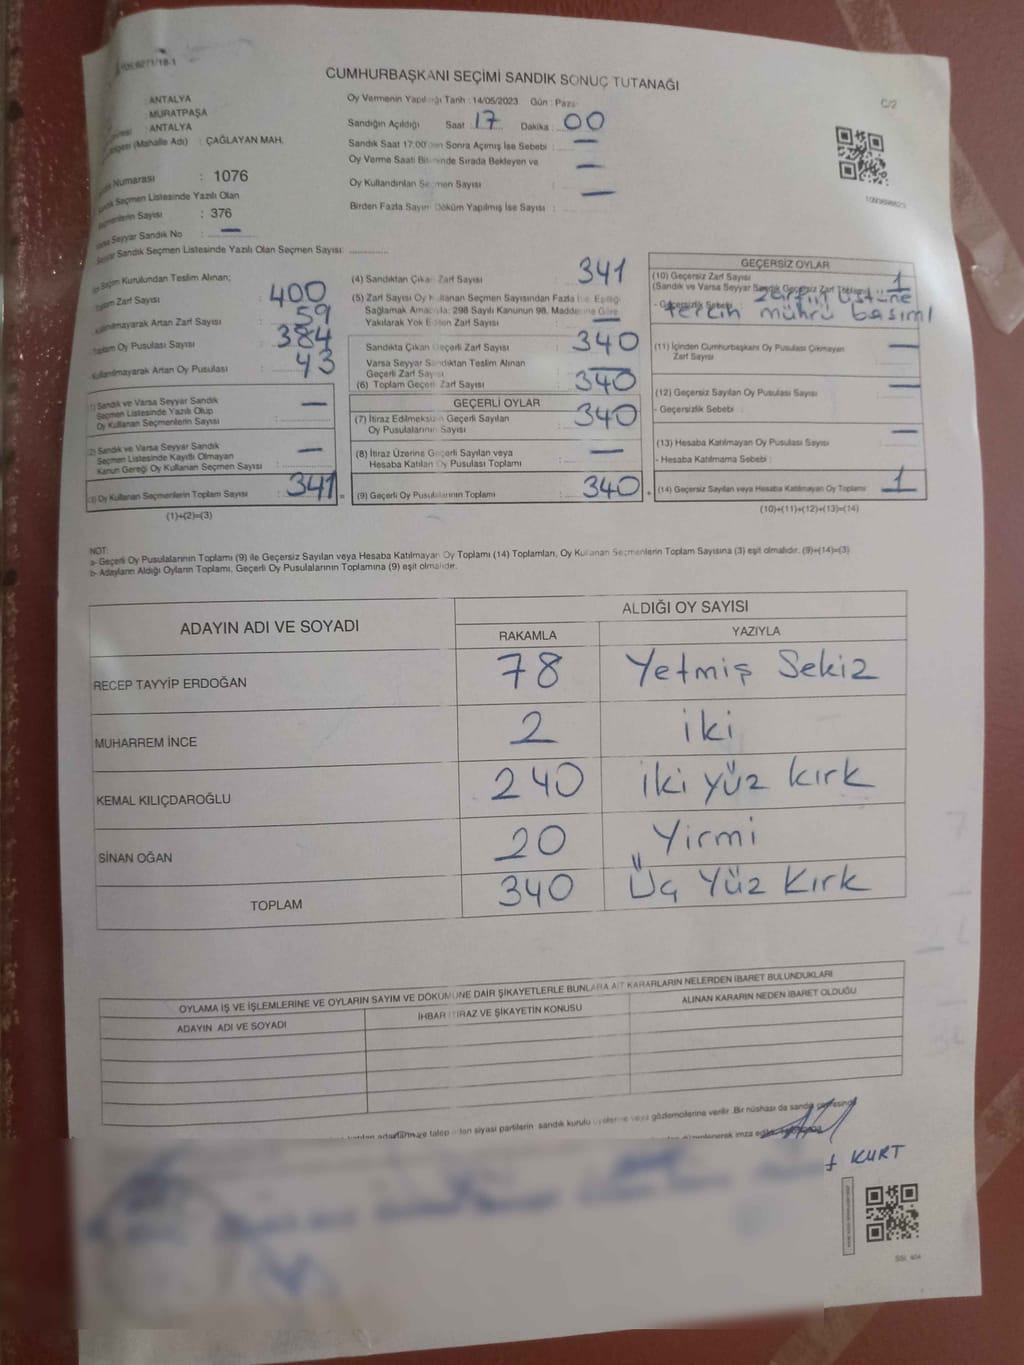 CUMHURBAŞKANI SEÇİMİ SANDIK SONUÇ TUTANAĞI
C/2
ANTALYA
MURATPAŞA
ANTALYA
(Mahalle Adı) : ÇAĞLAYAN MAH.
Numarası : 1076
Seçmen Listesinde Yazılı Olan
Sayısı : 376
Seyyar Sandık No —
Seyyar Sandık Seçmen Listesinde Yazılı Olan Seçmen Sayısı:
Oy Vermenin Yapıldığı Tarih : 14/05/2023 Gün : Pazar
Sandığın Açıldığı Saat 17 Dakika 00
Sandık Saat 17.00'den Sonra Açılmış İse Sebebi : —
Oy Verme Saati Bitiminde Sırada Bekleyen ve
Oy Kullandırılan Seçmen Sayısı —
Birden Fazla Sayım Döküm Yapılmış İse Sayısı : —
Kurulundan Teslim Alınan;
Zarf Sayısı : 400
Kullanılmayarak Artan Zarf Sayısı : 59
Toplam Oy Pusulası Sayısı : 384
Kullanılmayarak Artan Oy Pusulası : 43
(1) Sandık ve Varsa Seyyar Sandık
Seçmen Listesinde Yazılı Olup
Oy Kullanan Seçmenlerin Sayısı —
(2) Sandık ve Varsa Seyyar Sandık
Seçmen Listesinde Kayıtlı Olmayan
Kanun Gereği Oy Kullanan Seçmen Sayısı —
(3) Oy Kullanan Seçmenlerin Toplam Sayısı : 341 =
(1)+(2)=(3)
(4) Sandıktan Çıkan Zarf Sayısı 341
(5) Zarf Sayısı Oy Kullanan Seçmen Sayısından Fazla İse, Eşitliği
Sağlamak Amacıyla; 298 Sayılı Kanunun 98. Maddesine Göre
Yakılarak Yok Edilen Zarf Sayısı —
Sandıkta Çıkan Geçerli Zarf Sayısı 340
Varsa Seyyar Sandıktan Teslim Alınan
Geçerli Zarf Sayısı —
(6) Toplam Geçerli Zarf Sayısı 340
GEÇERLİ OYLAR
(7) İtiraz Edilmeksizin Geçerli Sayılan
Oy Pusulalarının Sayısı 340
(8) İtiraz Üzerine Geçerli Sayılan veya
Hesaba Katılan Oy Pusulası Toplamı —
(9) Geçerli Oy Pusulalarının Toplamı : 340 +
GEÇERSİZ OYLAR
(10) Geçersiz Zarf Sayısı 1
(Sandık ve Varsa Seyyar Sandık Geçersiz Zarf Toplamı)
- Geçersizlik Sebebi : zarfın üstüne
tercih mührü basımı
(11) İçinden Cumhurbaşkanı Oy Pusulası Çıkmayan
Zarf Sayısı —
(12) Geçersiz Sayılan Oy Pusulası Sayısı —
- Geçersizlik Sebebi :
(13) Hesaba Katılmayan Oy Pusulası Sayısı —
- Hesaba Katılmama Sebebi :
(14) Geçersiz Sayılan veya Hesaba Katılmayan Oy Toplamı 1
(10)+(11)+(12)+(13)=(14)
NOT:
a- Geçerli Oy Pusulalarının Toplamı (9) ile Geçersiz Sayılan veya Hesaba Katılmayan Oy Toplamı (14) Toplamları, Oy Kullanan Seçmenlerin Toplam Sayısına (3) eşit olmalıdır. (9)+(14)=(3)
b- Adayların Aldığı Oyların Toplamı, Geçerli Oy Pusulalarının Toplamına (9) eşit olmalıdır.
ADAYIN ADI VE SOYADI
ALDIĞI OY SAYISI
RAKAMLA YAZIYLA
RECEP TAYYİP ERDOĞAN 78 Yetmiş Sekiz
MUHARREM İNCE 2 iki
KEMAL KILIÇDAROĞLU 240 iki yüz kırk
SİNAN OĞAN 20 Yirmi
TOPLAM 340 Üç Yüz Kırk
OYLAMA İŞ VE İŞLEMLERİNE VE OYLARIN SAYIM VE DÖKÜMÜNE DAİR ŞİKAYETLERLE BUNLARA AİT KARARLARIN NELERDEN İBARET BULUNDUKLARI
ADAYIN ADI VE SOYADI İHBAR İTİRAZ VE ŞİKAYETİN KONUSU ALINAN KARARIN NEDEN İBARET OLDUĞU
talep eden siyasi partilerin sandık kurulu üyelerine veya gözlemcilerine verilir. Bir nüshası da sandık çevresinde
imza
KURT